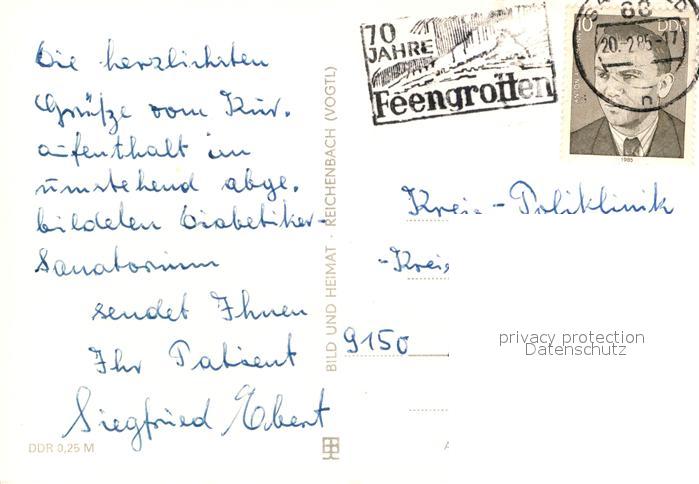 Die herzlichsten
Grüße vom Kur-
aufenthalt im
umstehend abge-
bildeten Diabetiker-
Sanatorium
sendet Ihnen
Ihr Patient
Siegfried Ebert
DDR 0,25 M
BILD UND HEIMAT · REICHENBACH (VOGTL)
70
JAHRE
Feengrotten
10
DDR
68
20.-2.85-17
n
1985
Kreis-Poliklinik
-Kreis
9150
privacy protection
Datenschutz